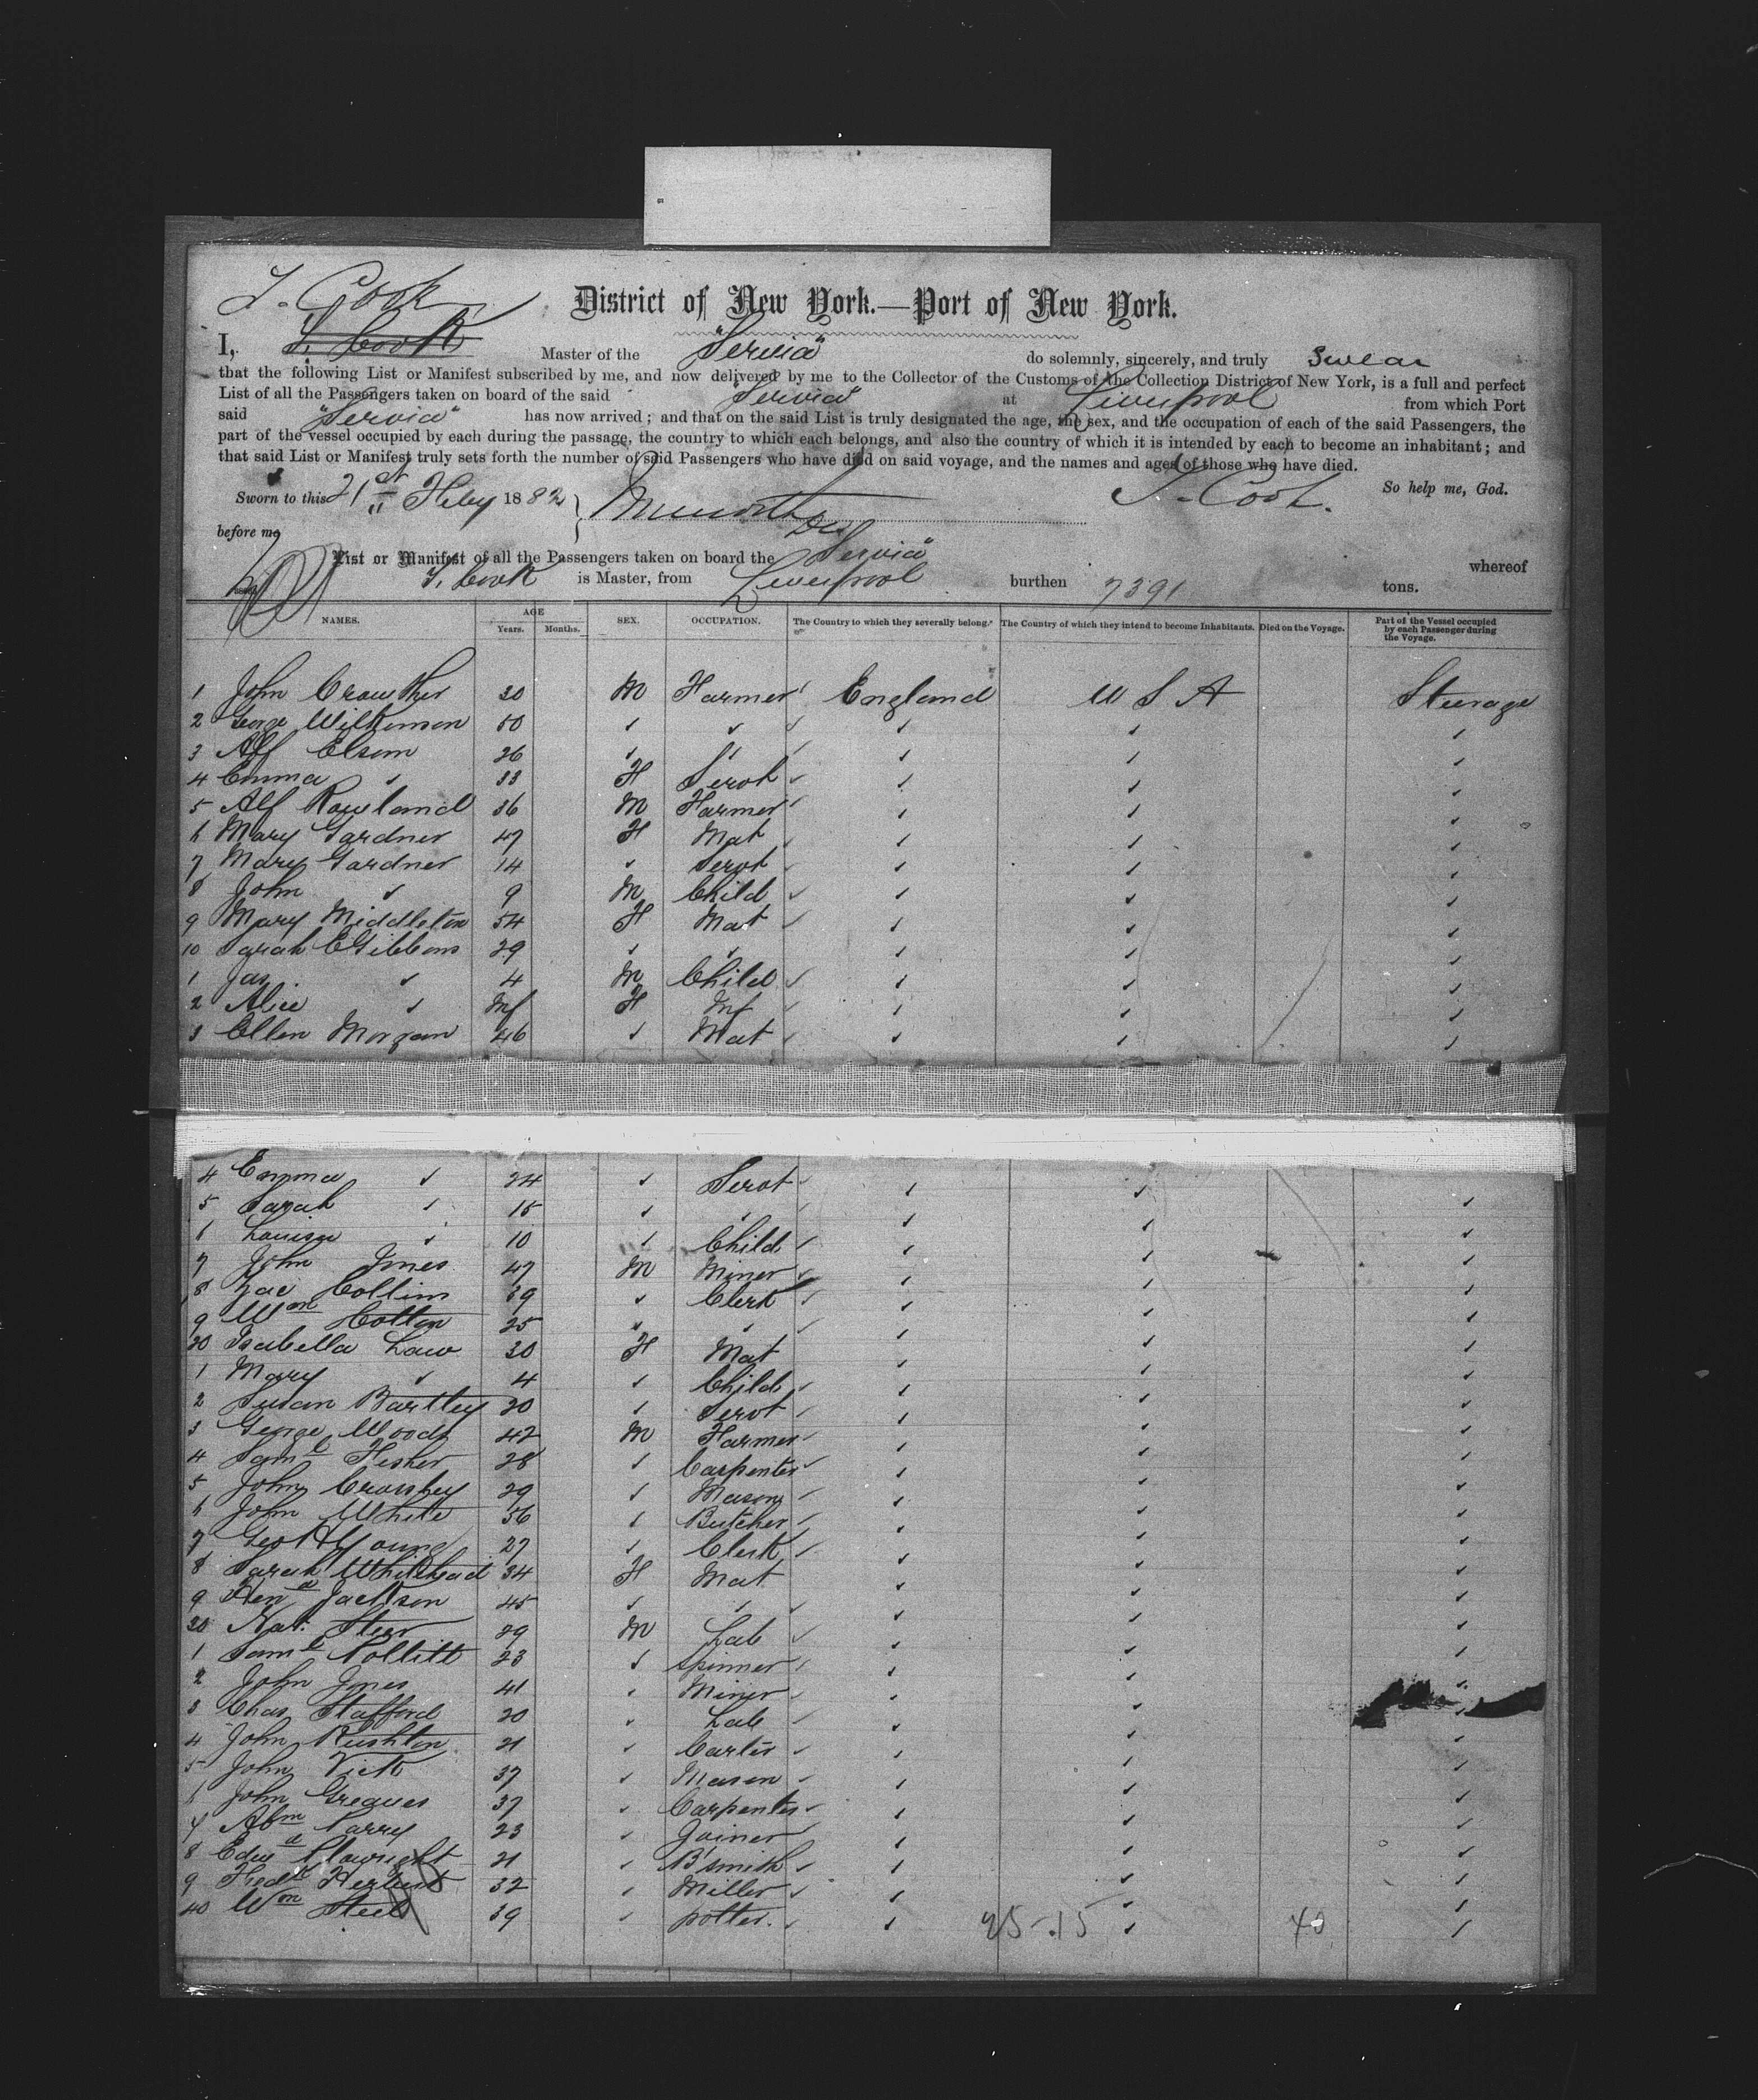 T. Cook
District of New York.—Port of New York.
I, T. Cook Master of the "Servia" do solemnly, sincerely, and truly swear
that the following List or Manifest subscribed by me, and now delivered by me to the Collector of the Customs of the Collection District of New York, is a full and perfect
List of all the Passengers taken on board of the said "Servia" at Liverpool from which Port
said "Servia" has now arrived; and that on the said List is truly designated the age, the sex, and the occupation of each of the said Passengers, the
part of the vessel occupied by each during the passage, the country to which each belongs, and also the country of which it is intended by each to become an inhabitant; and
that said List or Manifest truly sets forth the number of said Passengers who have died on said voyage, and the names and ages of those who have died.
Sworn to this 21st Feby 1882 T. Cook. So help me, God.
before me
List or Manifest of all the Passengers taken on board the "Servia" whereof
T. Cook is Master, from Liverpool burthen 7391 tons.
NAMES. AGE Years. Months. SEX. OCCUPATION. The Country to which they severally belong. The Country of which they intend to become Inhabitants. Died on the Voyage. Part of the Vessel occupied by each Passenger during the Voyage.
1 John Crowther 30 M Farmer England U S A Steerage
2 George Wilkinson 50 " "
3 Alf Elsom 26 " "
4 Emma " 33 F Servt
5 Alf Rowland 36 M Farmer
6 Mary Gardner 47 F Mat
7 Mary Gardner 14 " Servt
8 John " 9 M Child
9 Mary Middleton 54 F Mat
10 Sarah E Gibbons 29 " "
1 Jas " 4 M Child
2 Alice " Inf F Inf
3 Ellen Morgan 46 " Mat
4 Emma " 24 " Servt
5 Sarah " 15 " "
6 Louisa " 10 " Child
7 John Jones 47 M Miner
8 Collins 39 " Clerk
9 Wm Hotton 25 " "
20 Isabella Law 30 F Mat
1 Mary " 4 " Child
2 Susan Bartley 20 " Servt
3 George Woods 42 M Farmer
4 Saml Fisher 28 " Carpenter
5 John Crosshey 29 " Mason
6 John White 36 " Butcher
7 Geo H Young 27 " Clerk
8 Sarah Whitehead 34 F Mat
9 Jackson 45 " "
30 Nat. Steer 29 M Lab
1 Saml Pollitt 23 " Spinner
2 John Jones 41 " Miner
3 Chas Stafford 20 " Lab
4 John Rushton 21 " Carter
5 John Vick 37 " Mason
6 John Greaves 37 " Carpenter
7 Abm Parry 23 " Joiner
8 Edwd Plowright 21 " B'smith
9 Fredk Herbert 32 " Miller
40 Wm Steel 39 " potter.
25 - 15 40